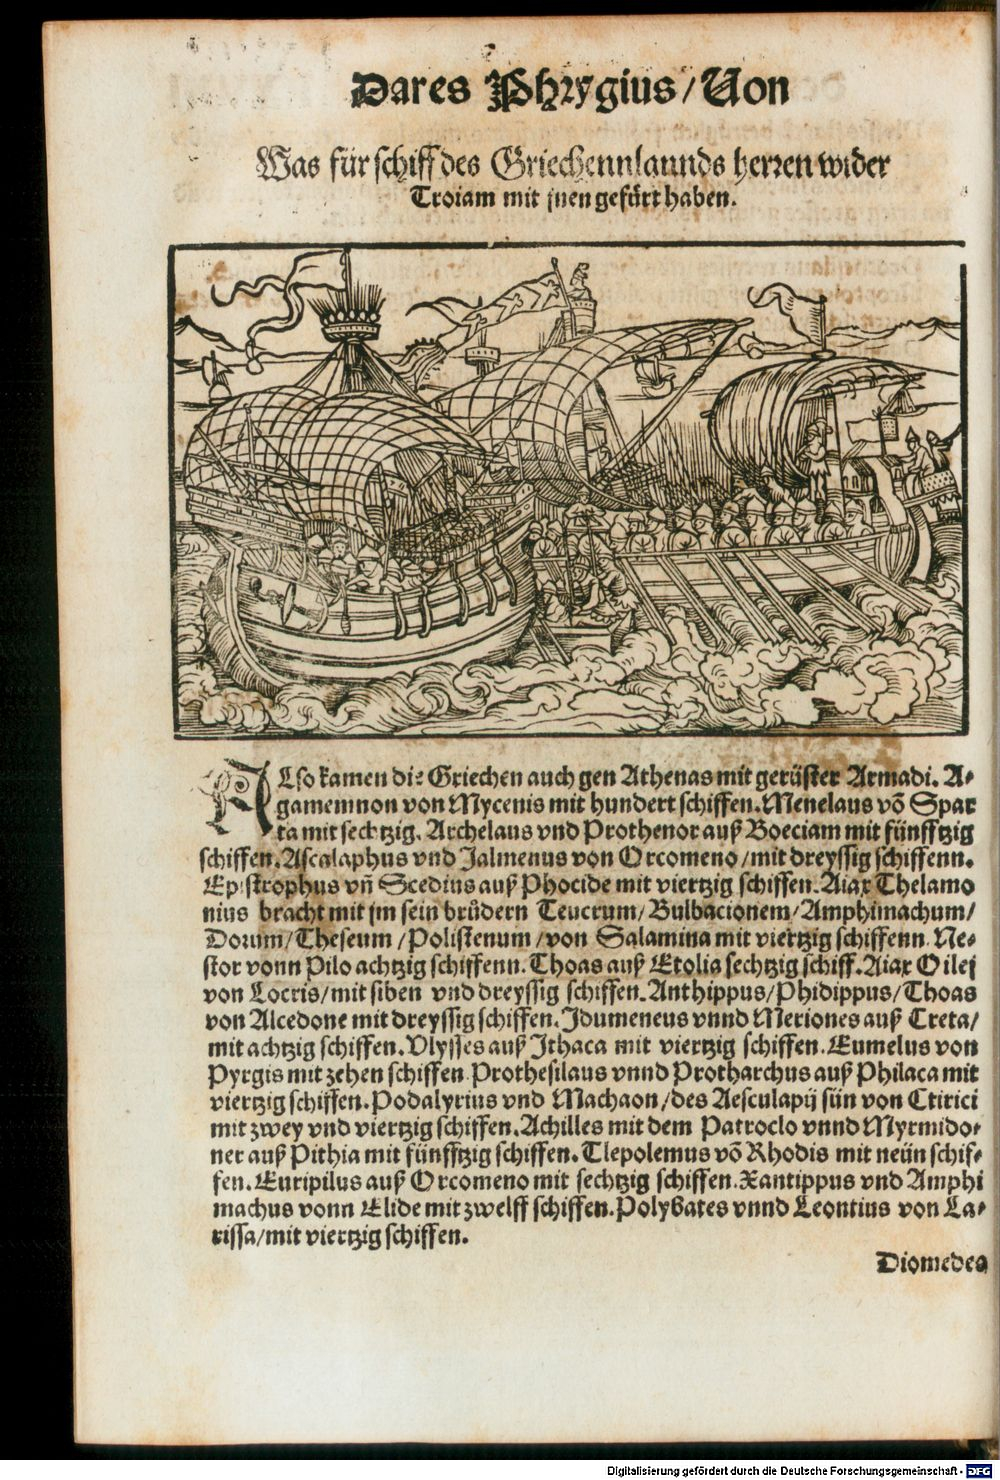 Dares Phrygius/Von
Was für schiff des Griechennlaunds herren wider
Troiam mit jnen gefürt haben.
ALso kamen die Griechen auch gen Athenas mit gerüster Armadi. A-
gamemnon von Mycenis mit hundert schiffen. Menelaus võ Spar
ta mit sechtzig. Archelaus vnd Prothenor auß Boeciam mit fünfftzig
schiffen. Ascalaphus vnd Jalmenus von Orcomeno/mit dreyssig schiffenn.
Epistrophus vñ Scedius auß Phocide mit viertzig schiffen. Aiax Thelamo
nius bracht mit jm sein brüdern Teucrum/Bulbacionem/Amphimachum/
Dorum/Theseum/Polistenum/von Salamina mit viertzig schiffenn. Ne-
stor vonn Pilo achtzig schiffenn. Thoas auß Etolia sechtzig schiff. Aiax Oilej
von Locris/mit siben vnd dreyssig schiffen. Anthippus/Phidippus/Thoas
von Alcedone mit dreyssig schiffen. Idumeneus vnnd Meriones auß Creta/
mit achtzig schiffen. Vlysses auß Ithaca mit viertzig schiffen. Eumelus von
Pyrgis mit zehen schiffen. Prothesilaus vnnd Protharchus auß Philaca mit
viertzig schiffen. Podalyrius vnd Machaon/des Aesculapij sün von Ctirici
mit zwey vnd viertzig schiffen. Achilles mit dem Patroclo vnnd Myrmido-
ner auß Pithia mit fünfftzig schiffen. Tlepolemus võ Rhodis mit neün schif-
fen. Euripilus auß Orcomeno mit sechtzig schiffen. Xantippus vnd Amphi
machus vonn Elide mit zwelff schiffen. Polybates vnnd Leontius von La-
rissa/mit viertzig schiffen.
Diomedes
Digitalisierung gefördert durch die Deutsche Forschungsgemeinschaft - DFG